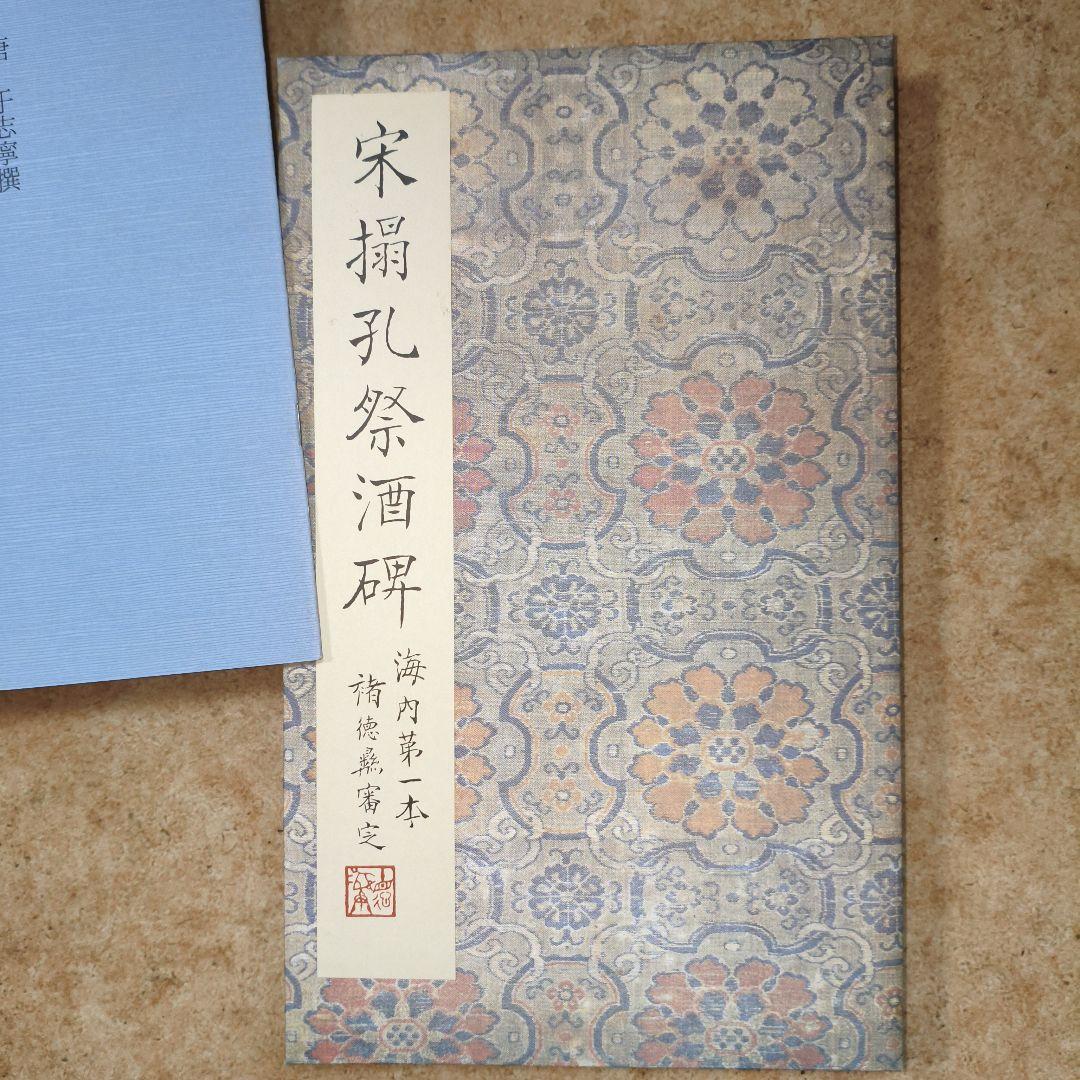 宋搨孔祭酒碑
海内第一本
褚德彝審定
唐 于志寧撰